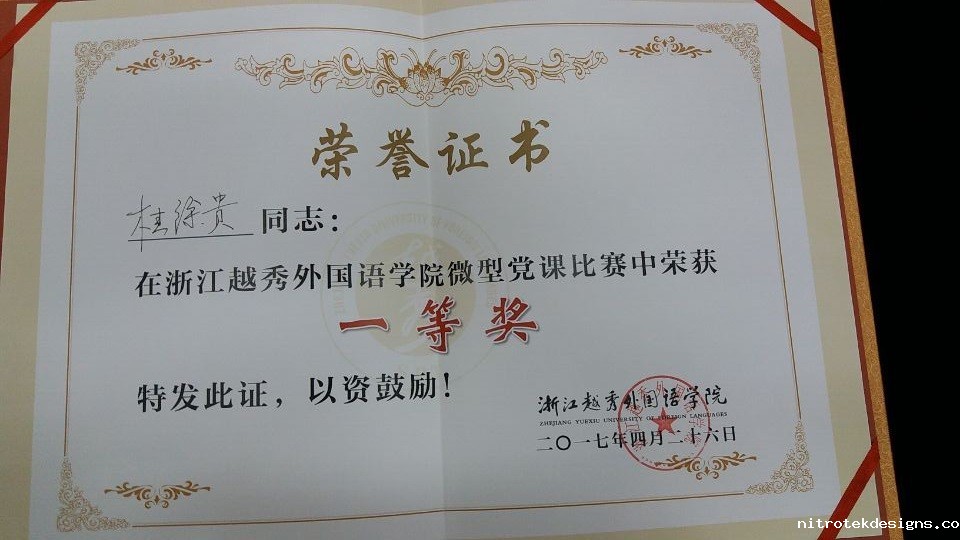 荣誉证书
桂徐贵 同志：
在浙江越秀外国语学院微型党课比赛中荣获
一等奖
特发此证，以资鼓励！
浙江越秀外国语学院
ZHEJIANG YUEXIU UNIVERSITY OF FOREIGN LANGUAGES
二〇一七年四月二十六日
nitrotekdesigns.co